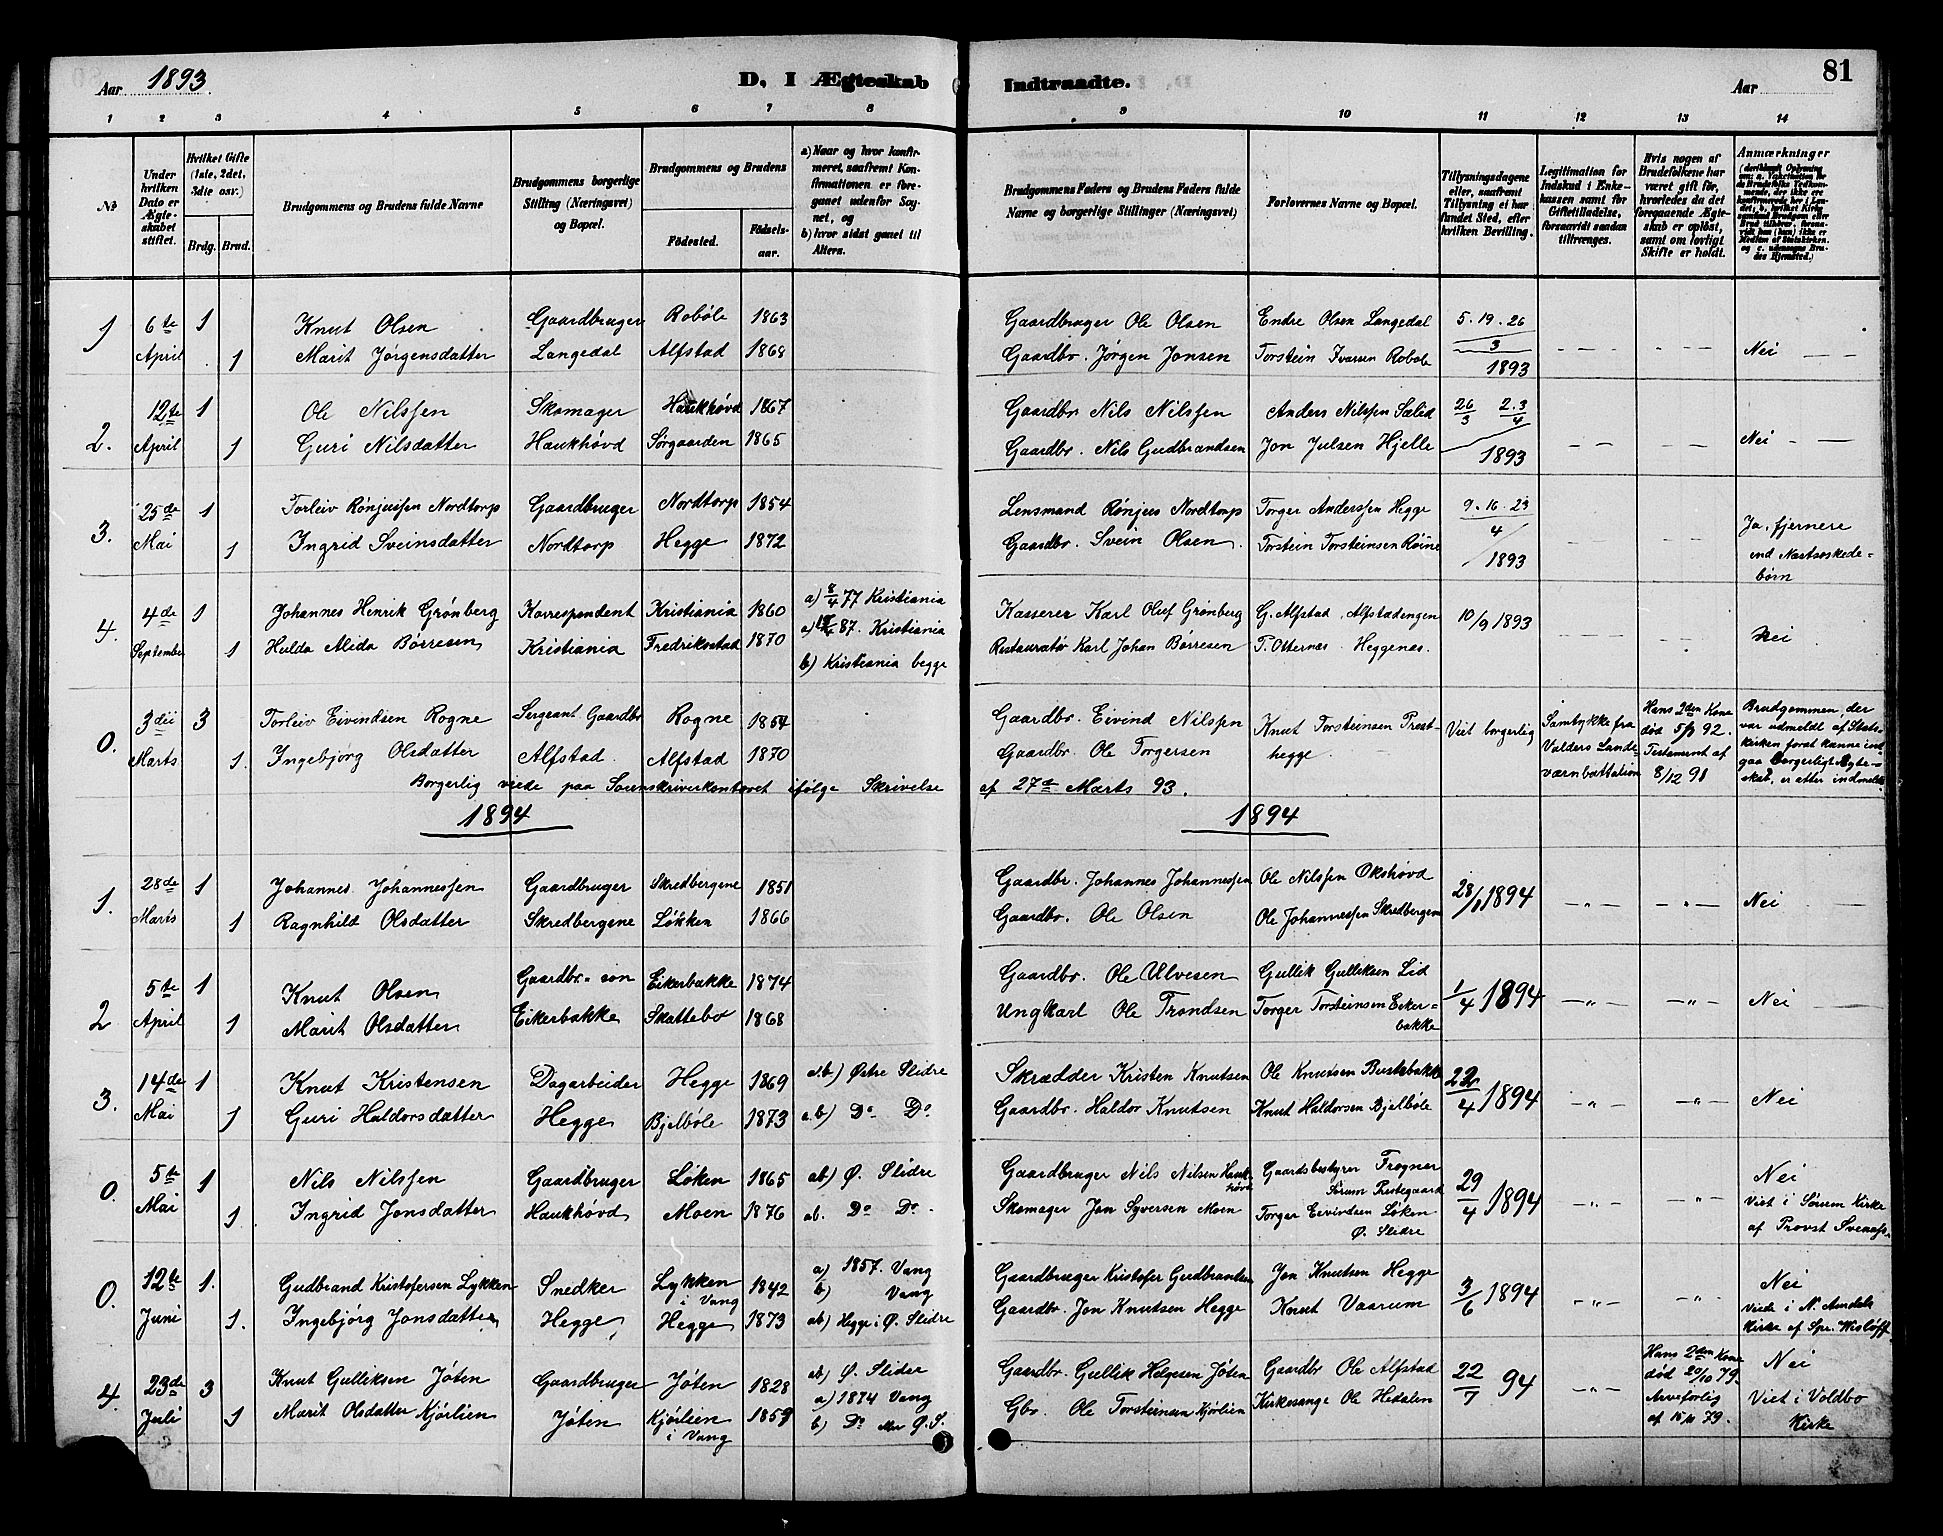 Aar 1893. D. I Ægteskab Indtraadte. Aar 81
1 2 3 4 5 6 7 8 9 10 11 12 13 14
No
Under hvilken Dato er Ægteskabet stiftet.
Hvilket Gifte (1ste, 2det, 3die osv.)
Brdg. Brud.
Brudgommens og Brudens fulde Navne
Brudgommens borgerlige Stilling (Næringsvei) og Bopæl.
Brudgommens og Brudens
Födested. Födselsaar.
a) Naar og hvor konfirmeret, saafremt Konfirmationen er foregaaet udenfor Sognet, og
b) hvor sidst gaaet til Alters.
Brudgommens Faders og Brudens Faders fulde Navne og borgerlige Stillinger (Næringsvei)
Forlovernes Navne og Bopæl.
Tillysningsdagene eller, saafremt Tillysning ei har fundet Sted, efter hvilken Bevilling.
Legitimation for Indskud i Enkekassen samt for Giftetilladelse, forsaavidt saadan tiltrænges.
Hvis nogen af Brudefolkene har været gift för, hvorledes da det foregaaende Ægteskab er oplöst, samt om lovligt Skifte er holdt.
Anmærkninger
1 6te April 1 Knut Olsen Gaardbruger Robøle 1863 Gaardbruger Ole Olsen Endre Olsen Langedal 5. 19. 26
1 Marit Jørgensdatter Langedal Alfstad 1868 Gaardbr. Jørgen Jonsen Torstein Ivarsen Robøle 3 1893 Nei
2. 12te April 1 Ole Nilssen Skomager Haukhøvd 1867 Gaardbr. Nils Nilssen Anders Nilssen Sælid 26/3 2.3/4
1 Guri Nilsdatter Haukhøvd Sørgaarden 1865 Gaardbr. Nils Gudbrandsen Jon Julsen Hjelle 1893 Nei
3. 25de Mai 1 Torleiv Rønjussen Nordtorp Gaardbruger Nordtorp 1854 Lensmand Rønjus Nordtorp Torger Anderssen Hegge 9. 16. 23
1 Ingrid Sveinsdatter Nordtorp Hegge 1872 Gaardbr. Svein Olsen Torstein Torsteinsen Røine 4/1893 Ja, fjernere end Næstsøskedebørn
4. 4de September 1 Johannes Henrik Grønberg Korrespondent Kristiania 1860 a) 8/4 77 Kristiania Kasserer Karl Oluf Grønberg G. Alfstad, Alfstadengen 10/9 1893
1 Hulda Alida Børresen Kristiania Fredriksstad 1870 87. Kristiania Restauratør Karl Johan Børresen T. Otternæs. Heggenæs. Nei
b) Kristiania begge
0. 3die Marts 3 Torleiv Eivindsen Rogne Sergeant Gaardbr Rogne 1854 Gaardbr. Eivind Nilssen Knut Torsteinsen Prest- Viet borgerlig Samtykke fra Valders Landeværnbattalion Hans 2den Kone død 5/7 92. Testament af 8/12 91 Brudgommen, der var udmeldt af Statskirken forat kunne indgaa borgerligt Ægteskab, er atter indmeldt
1. Ingebjørg Olsdatter Alfstad. Alfstad 1870 Gaardbr. Ole Torgersen hegge.
Borgerlig viede paa Sorenskriverkontoret ifølge Skrivelse af 27de Marts 93.
1894 1894
1. 28de Marts 1 Johannes Johannessen Gaardbruger Skredbergene 1851 Gaardbr. Johannes Johannessen Ole Nilssen Okshøvd 28/1 1894 Nei
1 Ragnhild Olsdatter Skredbergene Løkken 1866 Gaardbr. Ole Olsen Ole Johannessen Skredbergene
2 5te April 1 Knut Olsen Gaardbr.-søn Eikerbakke 1874 Gaardbr. Ole Ulvesen Gullik Gulliksen Lid 1/4 1894 Nei
1 Marit Olsdatter Eikerbakke Skattebo 1868 Ungkarl Ole Trondsen Torger Torsteinsen Eikerbakke
3. 14de Mai 1 Knut Kristensen Dagarbeider Hegge 1869 a.b) Østre Slidre Skrædder Kristen Knutsen Ole Knutsen Bustebakke 22/4 1894 Nei
1 Guri Haldorsdatter Hegge Bjelbøle 1873 a.b) Do Do Gaardbr. Haldor Knutsen Knut Haldorsen Bjelbøle
0. 5te Mai 1 Nils Nilssen Gaardbruger Løken 1865 ab) Ø. Slidre Gaardbruger Nils Nilsen Haukhøvd Gaardsbestyrer Frogner Sørum Prestegaard 29/4 1894 Nei
1 Ingrid Jonsdatter Haukhøvd Moen 1876 ab. Do Do Skomager Jon Syversen Moen Torger Eivindsen Løken Ø. Slidre Viet i Sørum Kirke af Provst
0. 12te Juni 1. Gudbrand Kristofersen Lykken Snedker Lykken i Vang 1842 a) 1857. Vang b) Vang Gaardbruger Kristofer Gudbrandsen Jon Knutsen Hegge 3/6 1894 Nei
1. Ingebjørg Jonsdatter Hegge Hegge 1873 ab) Hegge i Ø. Slidre Gaardbr. Jon Knutsen Hegge Knut Vaarum Viede i N. Aurdals Kirke af Spr. Wisløff
4. 23de Juli 3 Knut Gulliksen Jøten Gaardbruger Jøten 1828 ab) Ø. Slidre Gaardbr. Gullik Helgesen Jøten Gaardbr Ole Alfstad 22/7 94 Hans 2den Kone død 20/10 79. Arveforlig af 15/11 79. Nei
1 Marit Olsdatter Kjørlien Jøten Kjørlien i Vang 1859 a) 1874 Vang b) Do Ø. S. Gbr. Ole Torsteinsen Kjørlien Kirkesanger Ole Hedalen Viet i Voldbo Kirke